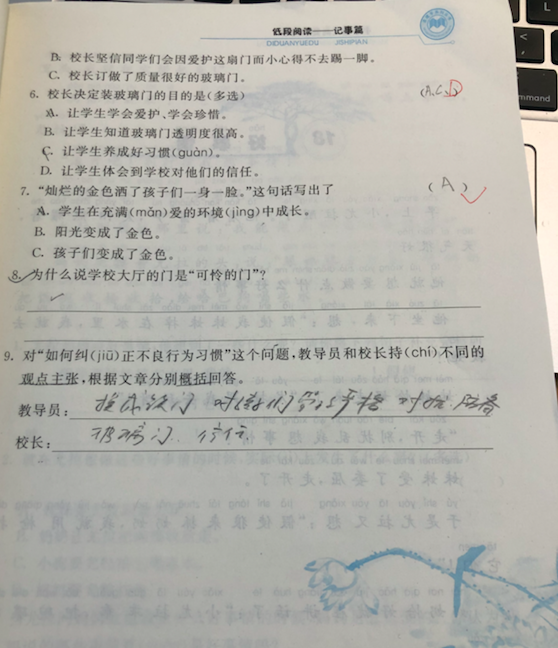 低段阅读 记事篇
DIDUANYUEDU JISHIPIAN
B. 校长坚信同学们会因爱护这扇门而小心得不去踢一脚。
C. 校长订做了质量很好的玻璃门。
6. 校长决定装玻璃门的目的是(多选) (A.C.D)
A. 让学生学会爱护、学会珍惜。
B. 让学生知道玻璃门透明度很高。
C. 让学生养成好习惯(guàn)。
D. 让学生体会到学校对他们的信任。
7. “灿烂的金色洒了孩子们一身一脸。”这句话写出了 (A)
A. 学生在充满(mǎn)爱的环境(jìng)中成长。
B. 阳光变成了金色。
C. 孩子们变成了金色。
8. 为什么说学校大厅的门是“可怜的门”?
9. 对“如何纠(jiū)正不良行为习惯”这个问题,教导员和校长持(chí)不同的
观点主张,根据文章分别概括回答。
教导员: 换成铁门
校长: 玻璃门 信任
mmand